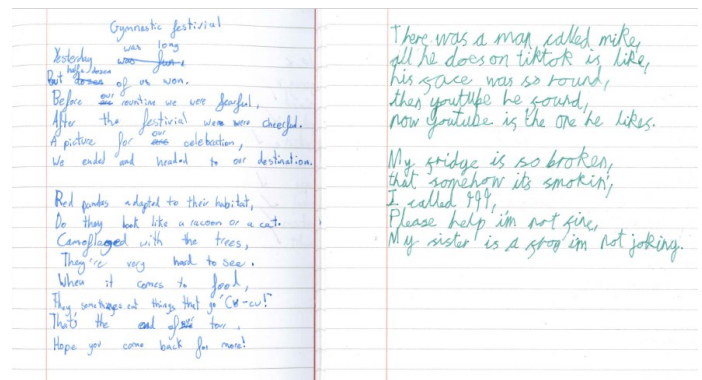 Gymnastic festivial
Yesterday was long
But half a dozen of us won.
Before our rountine we were fearful,
After the festivial were were cheerful.
A picture for our celebration,
We ended and headed to our destination.
Red pandas adapted to their habitat,
Do they look like a racoon or a cat.
Camoflaged with the trees,
They're very hard to see.
When it comes to food,
They somethings eat things that go "Cu-cu!"
That's the end of tour,
Hope you come back for more!
There was a man called mike,
all he does on tiktok is like,
his face was so round,
then youtube he found,
now Youtube is the one he likes.
My fridge is so broken,
that somehow its smokin',
I called 999,
Please help im not fine,
My sister is a im not joking.